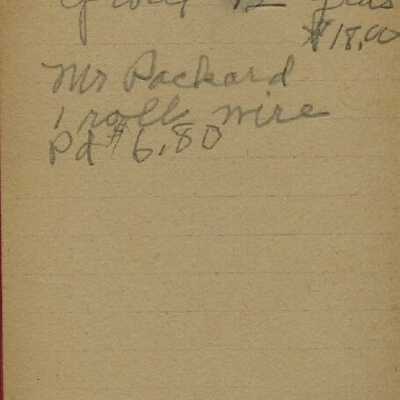 $18.00
Mr Packard
1 roll wire
Pd $6.80